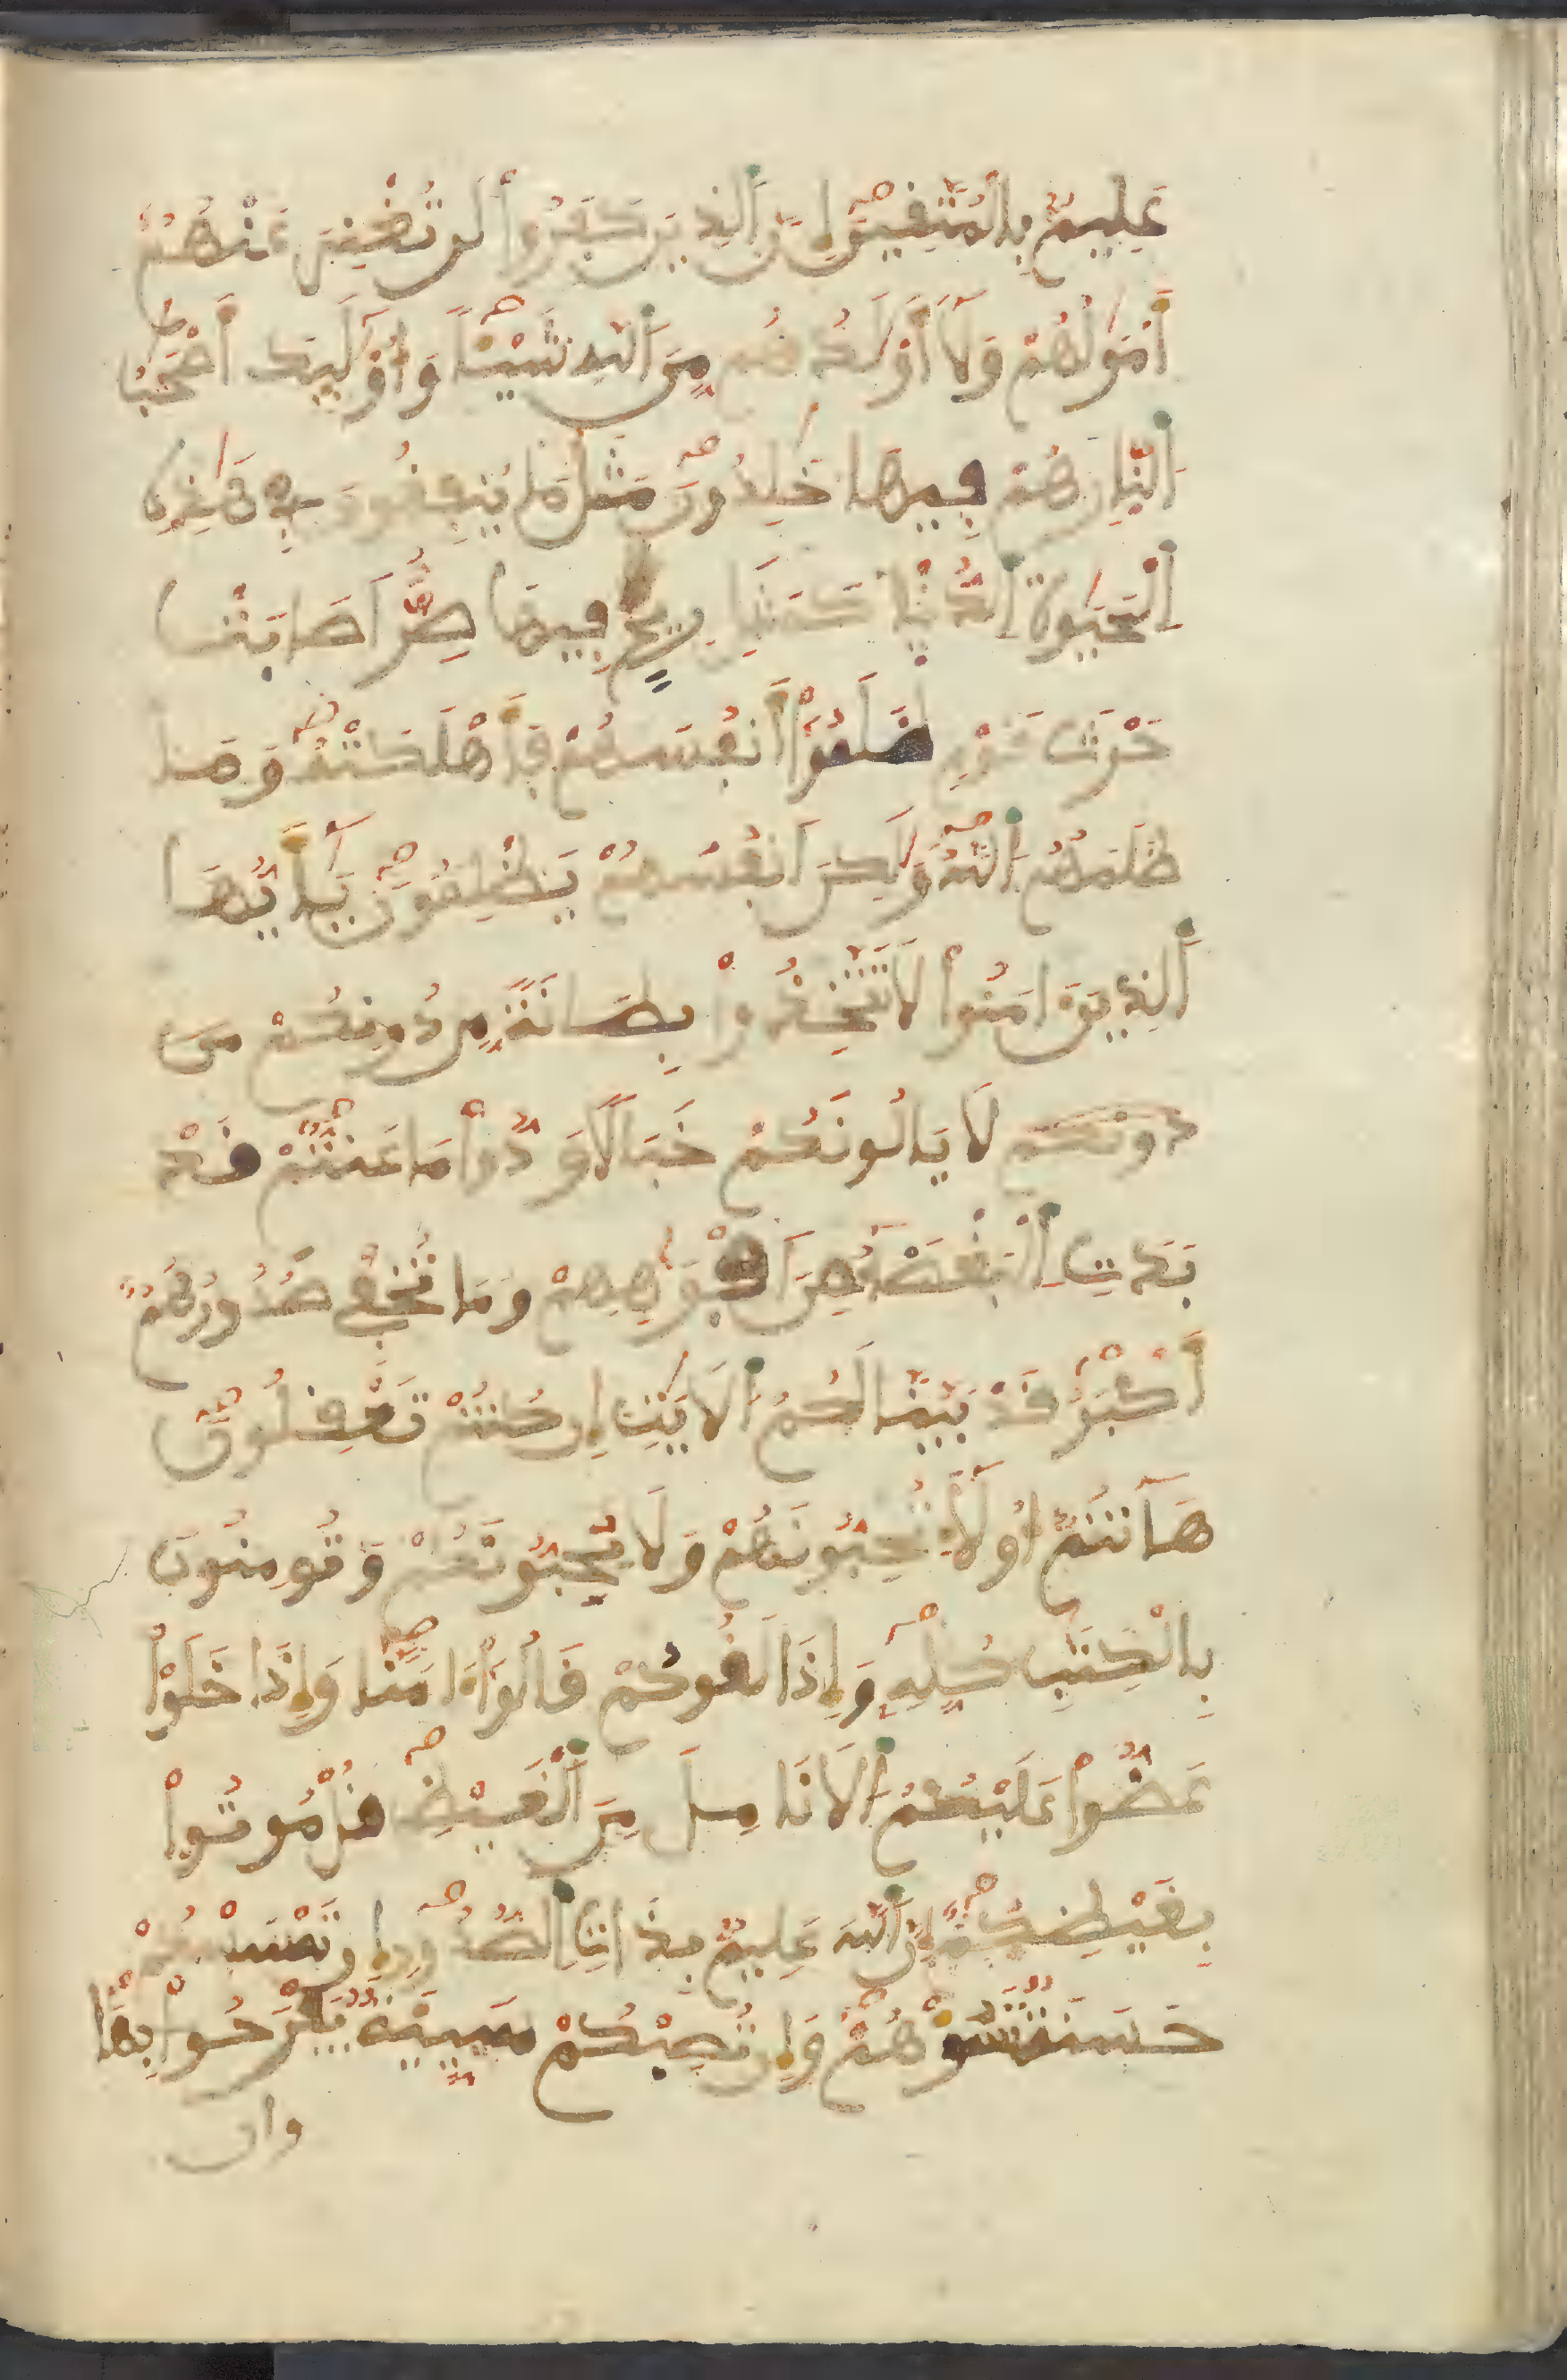 عَلِيمٌ بِالْمُتَّقِينَ إِنَّ ٱلَّذِينَ كَفَرُواْ لَن تُغْنِيَ عَنْهُمُ
أَمْوَٰلُهُمْ وَلَآ أَوْلَٰدُهُم مِّنَ ٱللَّهِ شَيْـًٔا وَأُوْلَٰٓئِكَ أَصْحَٰبُ
ٱلنّارِ هُمْ فِيهَا خَٰلِدُونَ مَثَلُ مَا يُنفِقُونَ فِي هَٰذِهِ
ٱلْحَيَوٰةِ ٱلدُّنْيَا كَمَثَلِ رِيحٍ فِيهَا صِرٌّ أَصَابَتْ
حَرْثَ قَوْمٍ ظَلَمُوٓاْ أَنفُسَهُمْ فَأَهْلَكَتْهُ وَمَا
ظَلَمَهُمُ ٱللَّهُ وَلَٰكِنَ اَنفُسَهُمْ يَظْلِمُونَ يَٰٓأَيُّهَا
ٱلَّذِينَ ءَامَنُواْ لَا تَتَّخِذُواْ بِطَانَةً مِّن دُونِكُمْ من
دونكم لَا يَالُونَكُمْ خَبَالًا وَدُّواْ مَا عَنِتُّمْ قَدْ
بَدَتِ ٱلْبَغْضَآءُ مِنَ اَفْوَٰهِهِمْ وَمَا تُخْفِي صُدُورُهُمُۥٓ
أَكْبَرُ قَدْ بَيَّنَّا لَكُمُ ٱلَايَٰتِ إِن كُنتُمْ تَعْقِلُونَ
هَآنتُمُۥٓ أُوْلَآءِ تُحِبُّونَهُمْ وَلَا يُحِبُّونَكُمْ وَتُومِنُونَ
بِالْكِتَٰبِ كُلِّهِۦ وَإِذَا لَقُوكُمْ قَالُوٓاْ ءَامَنَّا وَإِذَا خَلَوْاْ
عَضُّواْ عَلَيْكُمُ ٱلَانَامِلَ مِنَ ٱلْغَيْظِ قُلْ مُوتُواْ
بِغَيْظِكُمُۥٓ إِنَّ ٱللَّهَ عَلِيمٌ بِذَاتِ ٱلصُّدُورِ إِن تَمْسَسْكُمْ
حَسَنَةٌ تَسُؤْهُمْ وَإِن تُصِبْكُمْ سَيِّئَةٌ يَفْرَحُواْ بِهَا
وان